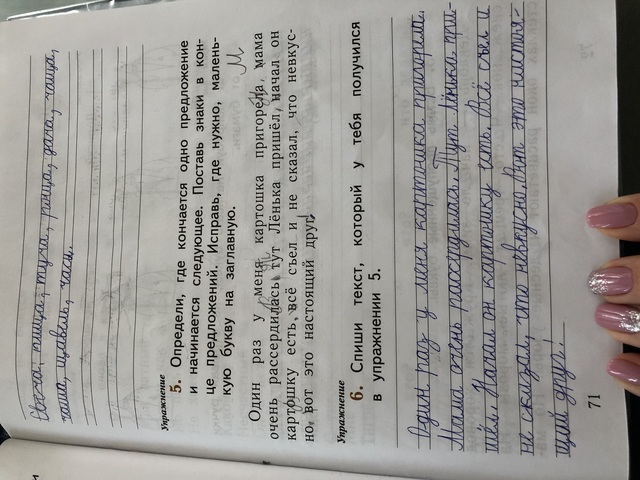 свеча, пища, туча, роща, дача, чаща,
чаша, щавель, часы.
Упражнение
5. Определи, где кончается одно предложение
и начинается следующее. Поставь знаки в кон-
це предложений. Исправь, где нужно, малень-
кую букву на заглавную.
М
Один раз у меня картошка пригорела, мама
очень рассердилась тут Лёнька пришёл, начал он
картошку есть, всё съел и не сказал, что невкус-
но, вот это настоящий друг!
Упражнение
6. Спиши текст, который у тебя получился
в упражнении 5.
Один раз у меня картошка пригорела.
Мама очень рассердилась. Тут Лёнька при-
шёл. Начал он картошку есть. Всё съел и
не сказал, что невкусно. Вот это настоя-
щий друг!
71